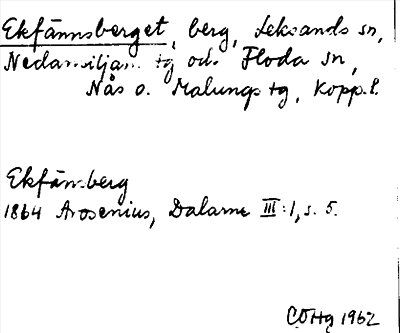 Ekfännsberget, berg, Leksands sn,
Nedansiljans tg och Floda sn,
Nås o. Malungs tg, Kopp.l.
Ekfänsberg
1864 Arosenius, Dalarne III:1, s. 5.
COHg 1962